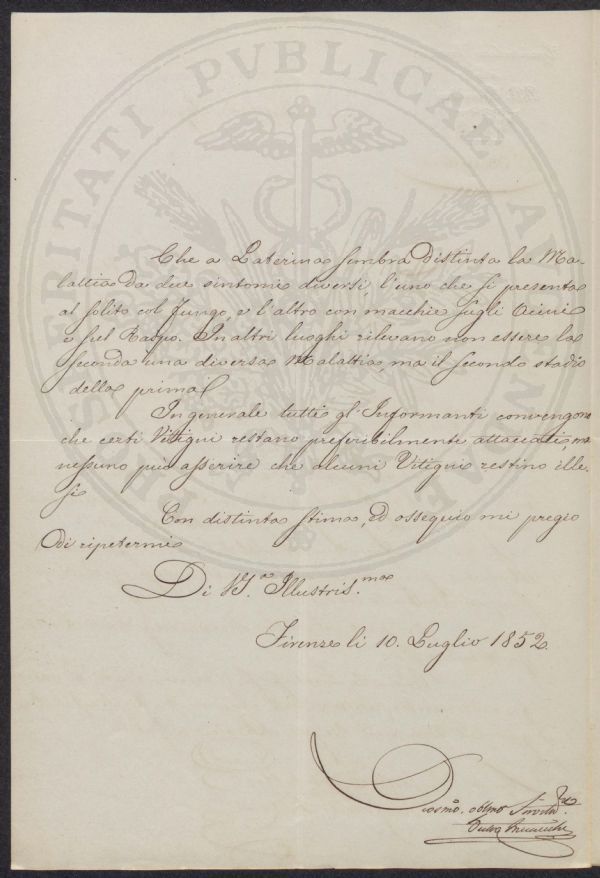 PROSPERITATI PVBLICAE AVGENDAE
Che a Laterina sembra distinta la Ma-
lattia da due sintomi diversi, l'uno che si presenta
al solito col Fungo, e l'altro con macchie sugli Acini
e sul Raspo. In altri luoghi rilevano non essere la
seconda una diversa Malattia, ma il secondo stadio
della prima.
In generale tutti gl'Informanti convengono
che certi Vitigni restano preferibilmente attaccati, ma
nessuno può asserire che alcuni Vitigni restino ille-
si
Con distinta stima, ed ossequio mi pregio
di ripetermi
Di VS.a Illustris.ma
Firenze li 10. Luglio 1852
Devmo. obbmo Servitore